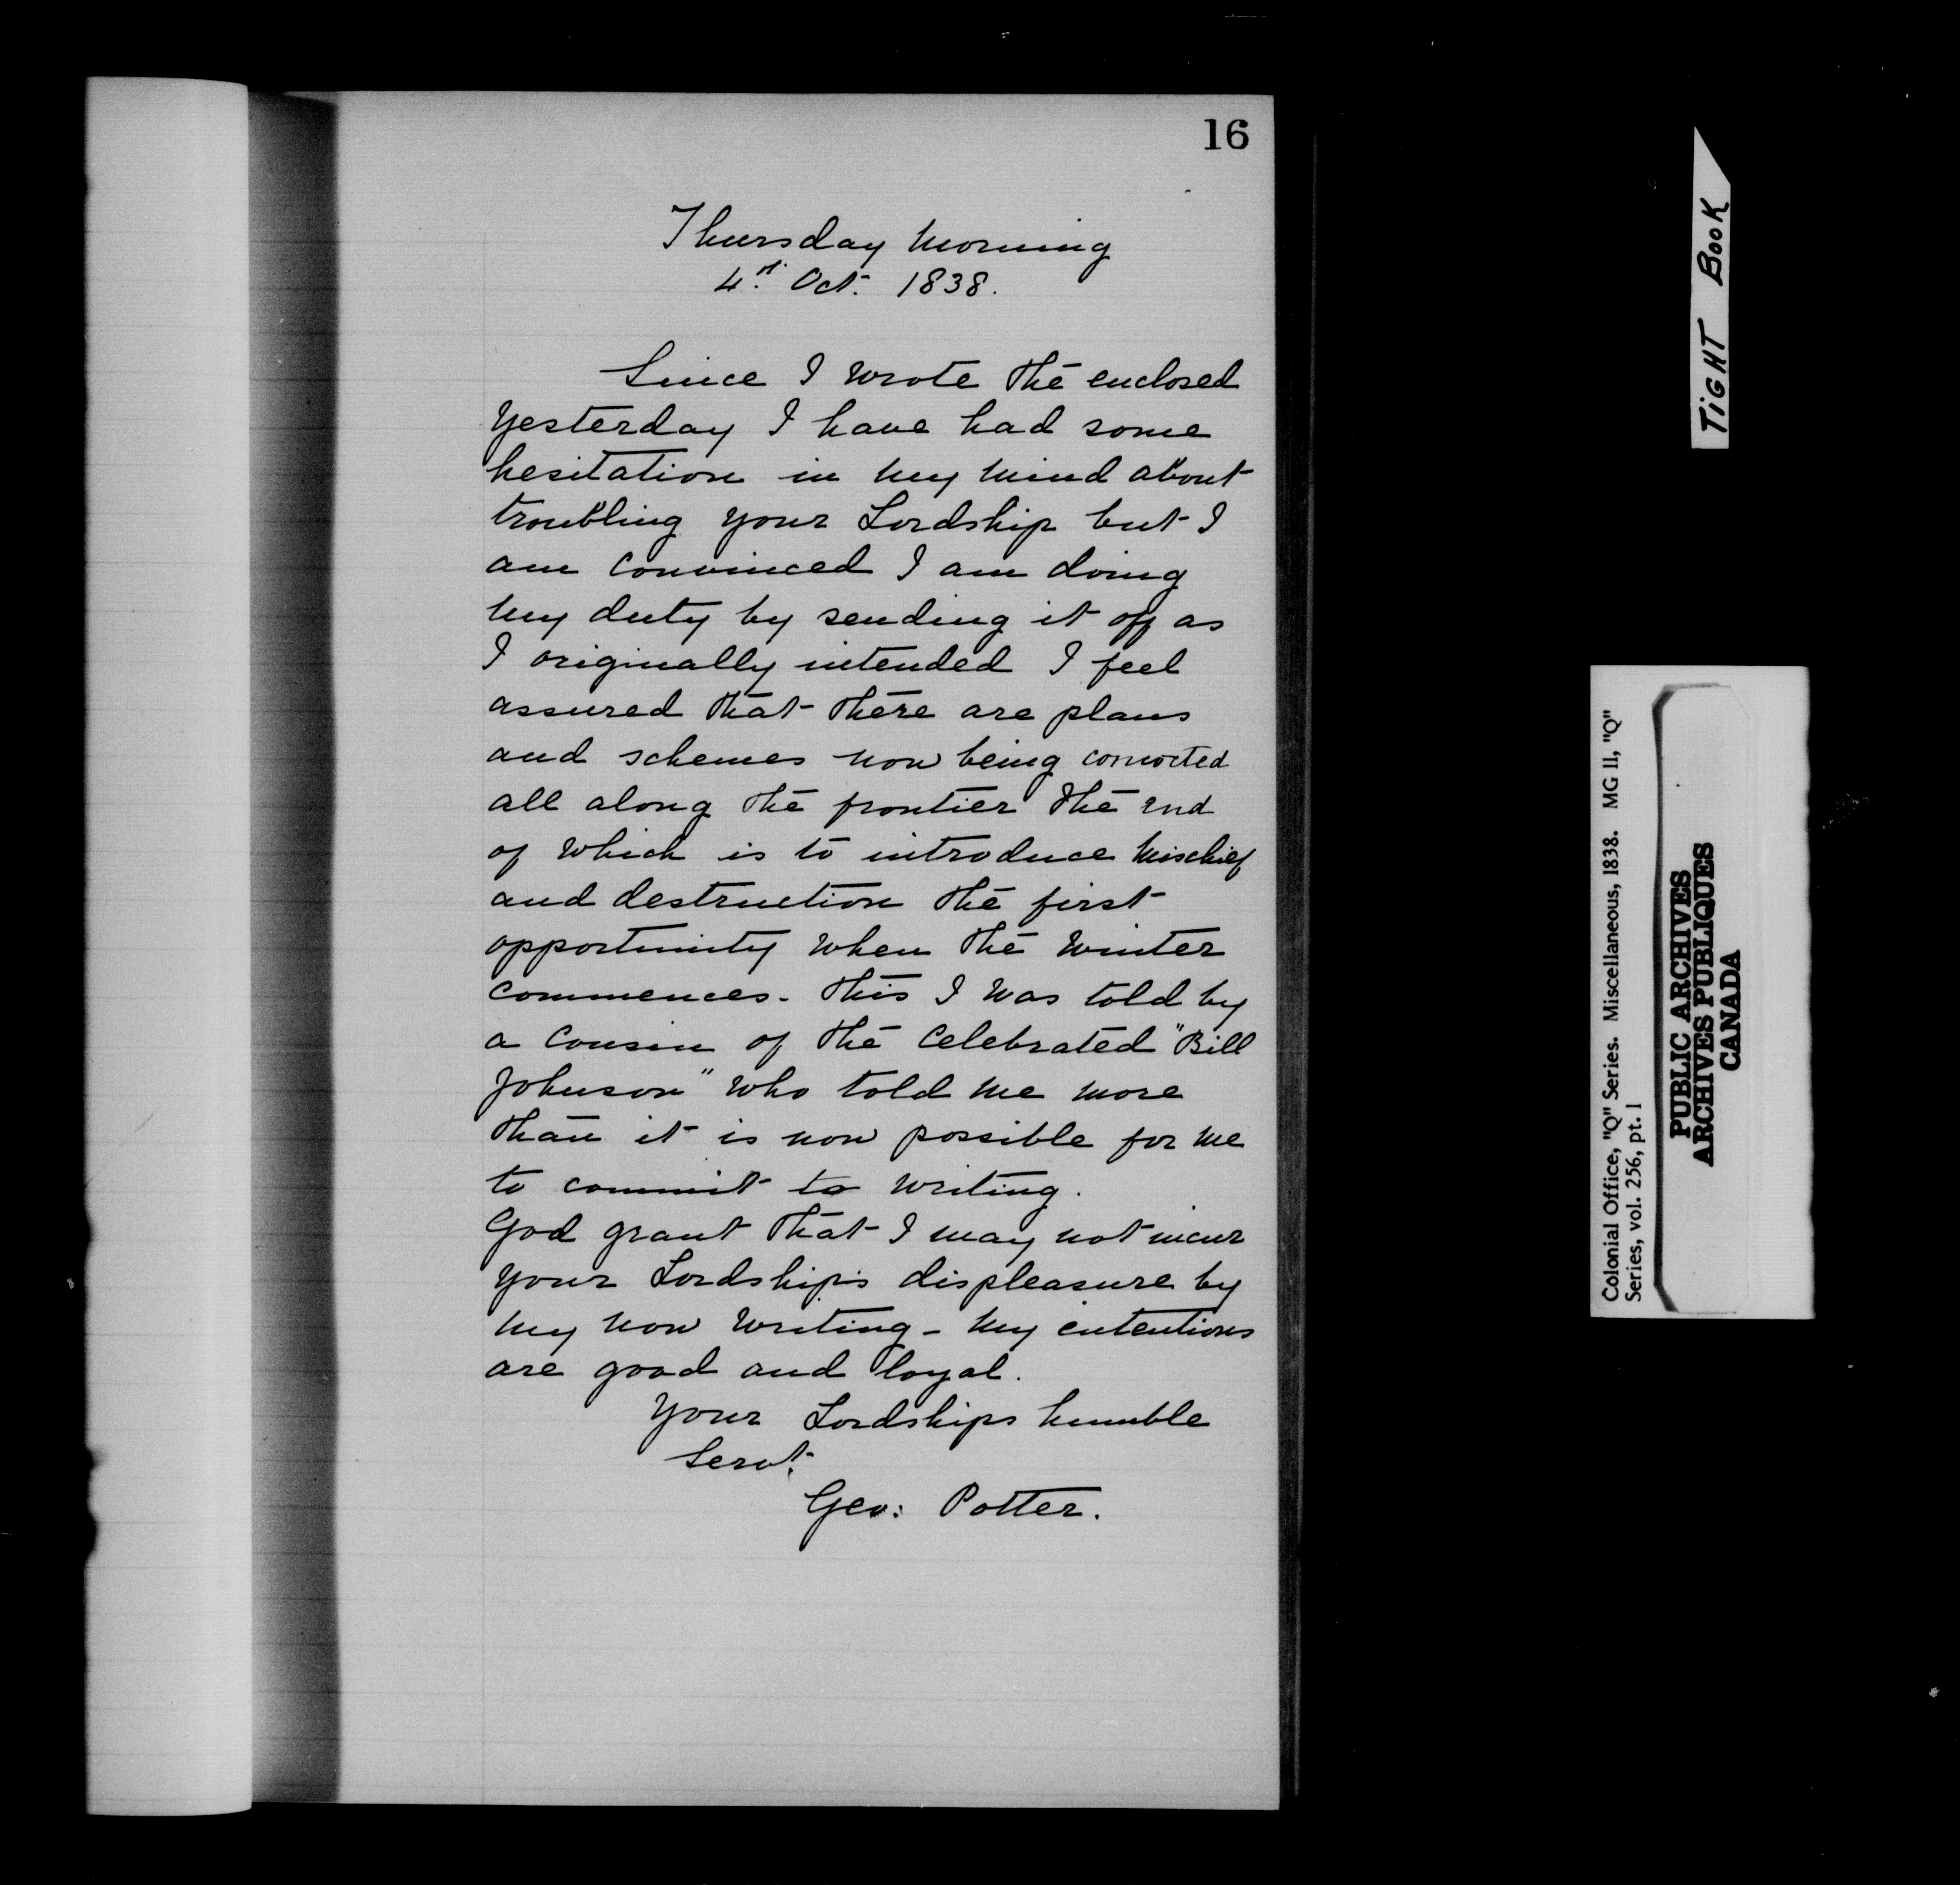 16
Thursday Morning
4th. Oct. 1838.
Since I wrote the enclosed
yesterday I have had some
hesitation in my mind about
troubling your Lordship but I
am convinced I am doing
my duty by sending it off as
I originally intended I feel
assured that there are plans
and schemes now being concocted
all along the frontier the end
of which is to introduce mischief
and destruction the first
opportunity when the winter
commences. This I was told by
a cousin of the celebrated "Bill
Johnson" who told me more
than it is now possible for me
to commit to writing.
God grant that I may not incur
your Lordship's displeasure by
my now writing - my intentions
are good and loyal.
Your Lordships humble
Servt.
Geo: Potter.
TIGHT BOOK
Colonial Office, "Q" Series. Miscellaneous, 1838. MG 11, "Q"
Series, vol. 256, pt. 1
PUBLIC ARCHIVES
ARCHIVES PUBLIQUES
CANADA